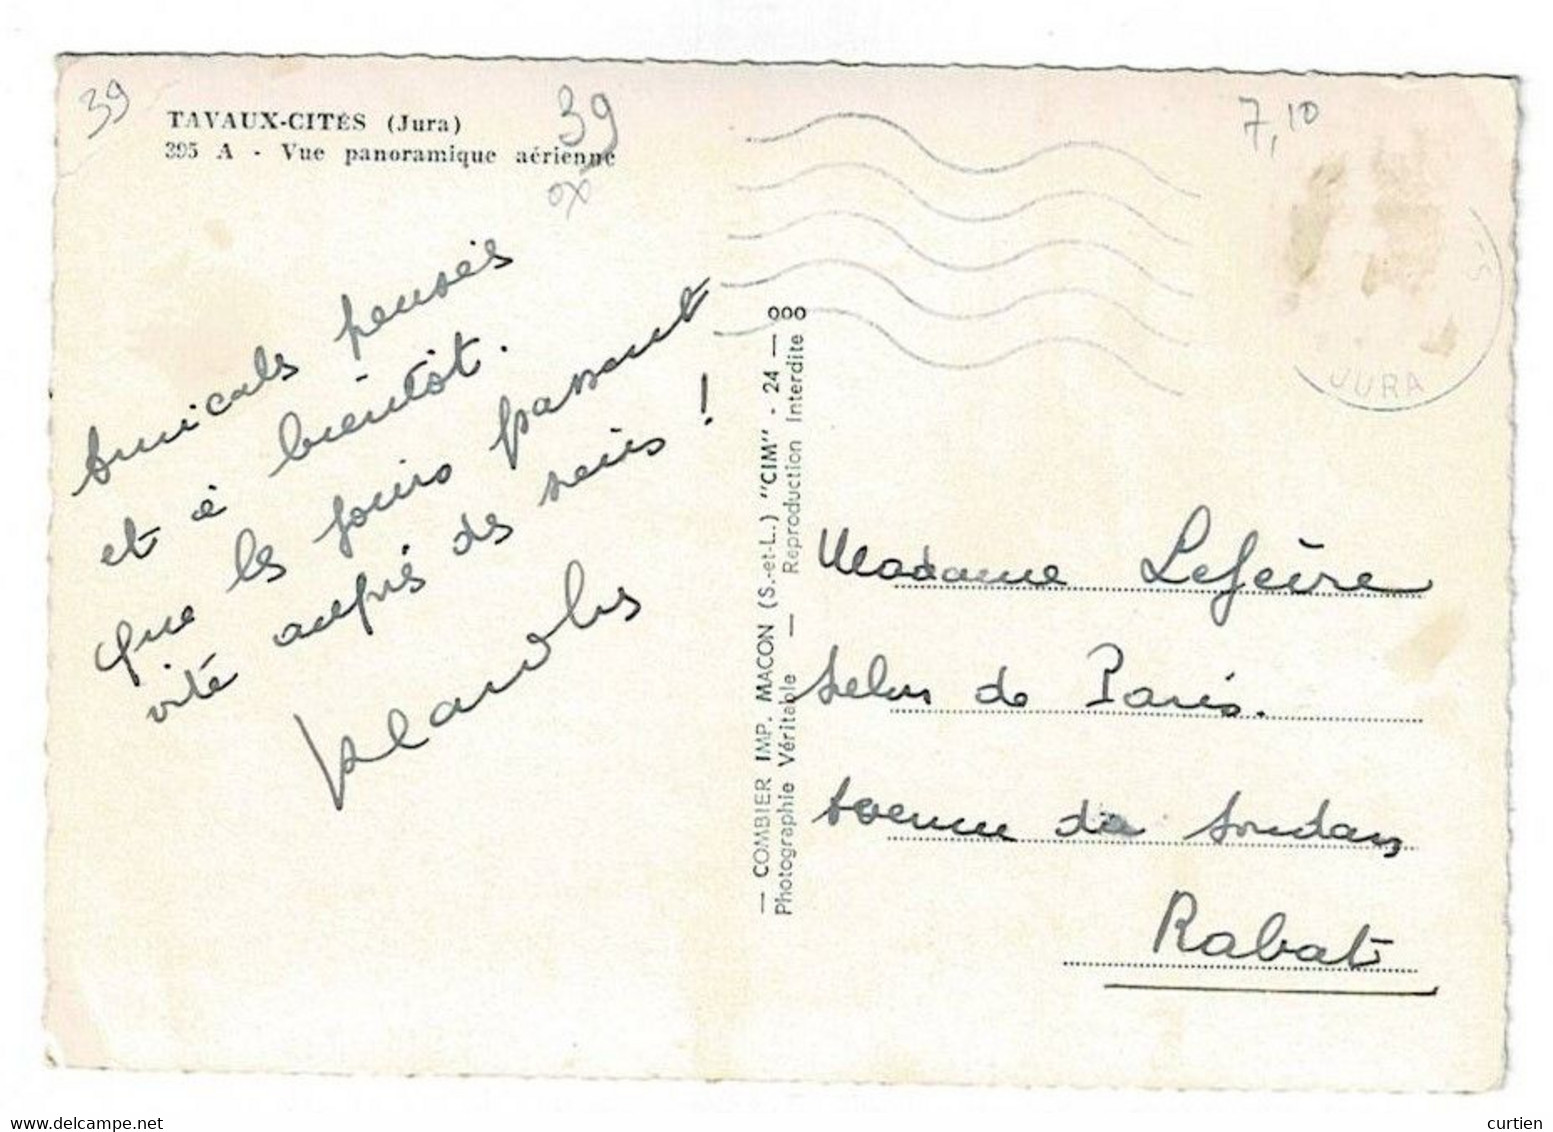 39
TAVAUX-CITÉS (Jura)
39
395 A - Vue panoramique aérienne
7,10
JURA
Amicals pensés
et à bientôt.
que les jours passent
vité auprés des
!
— COMBIER IMP. MACON (S.-et-L.) "CIM" - 24 — 000
Photographie Véritable — Reproduction Interdite
Madame Lefèvre
Selon de Paris.
Avenue du Soudan
Rabat
www.delcampe.net
curtien